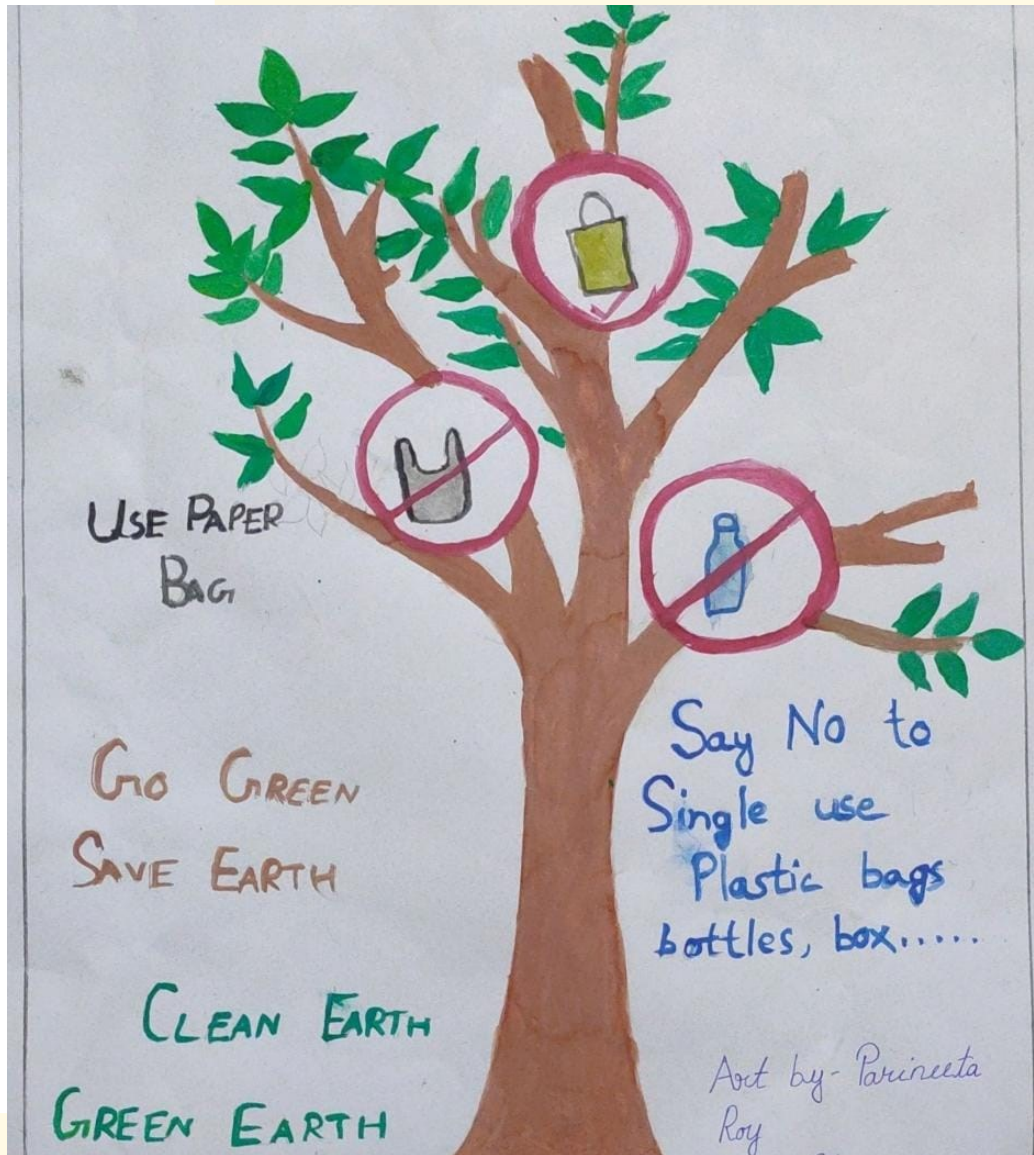 USE PAPER
BAG
GO GREEN
SAVE EARTH
CLEAN EARTH
GREEN EARTH
Say No to
Single use
Plastic bags
bottles, box.....
Art by- Parineeta
Roy